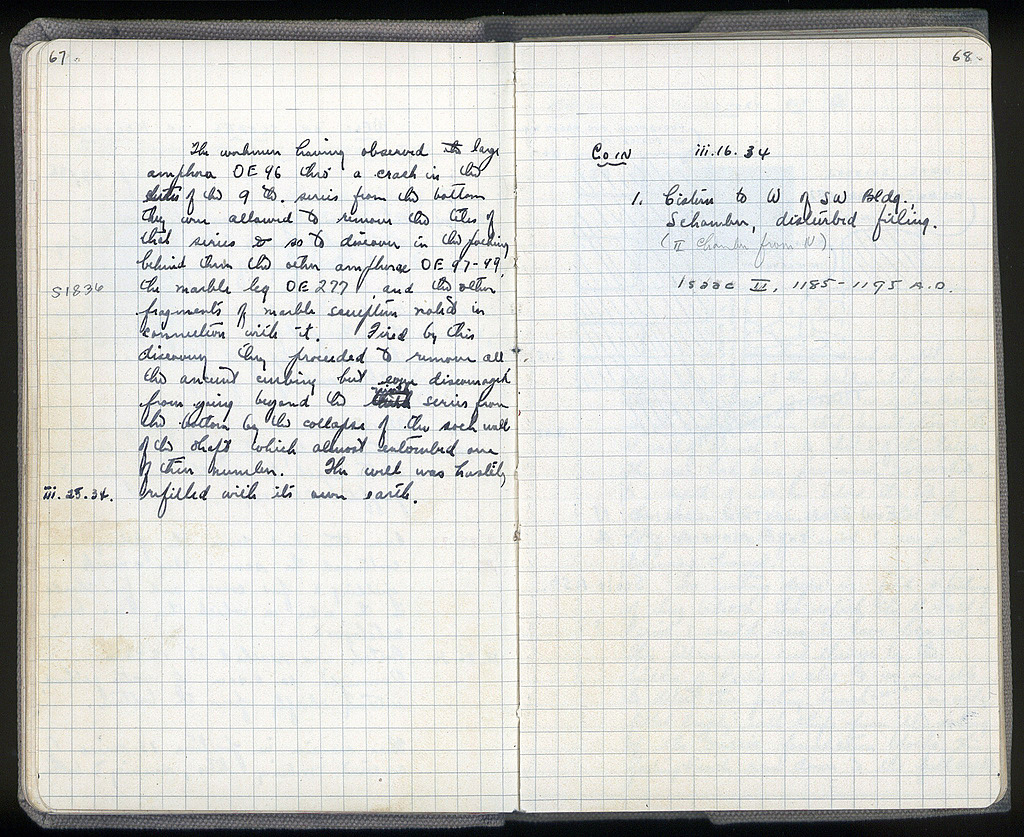 67.
The workmen having observed the large
amphora OE 96 thro' a crack in the
of the 9 th. series from the bottom
they were allowed to remove the tiles of
that series & so to discover in the packing
behind them the other amphorae OE 97-99,
S1836 the marble leg OE 277 and the other
fragments of marble sculpture noted in
connection with it. Fired by this
discovery they proceeded to remove all
the ancient curbing but were discouraged
from going beyond the ninth series from
the bottom by the collapse of the rock wall
of the shaft which almost entombed one
of their number. The well was hastily
iii.25.34. refilled with its own earth.
68.
COIN iii.16.34
1. Cistern to W of SW Bldg.,
S chamber, disturbed filling.
(II chamber from N).
Isaac II, 1185-1195 A.D.